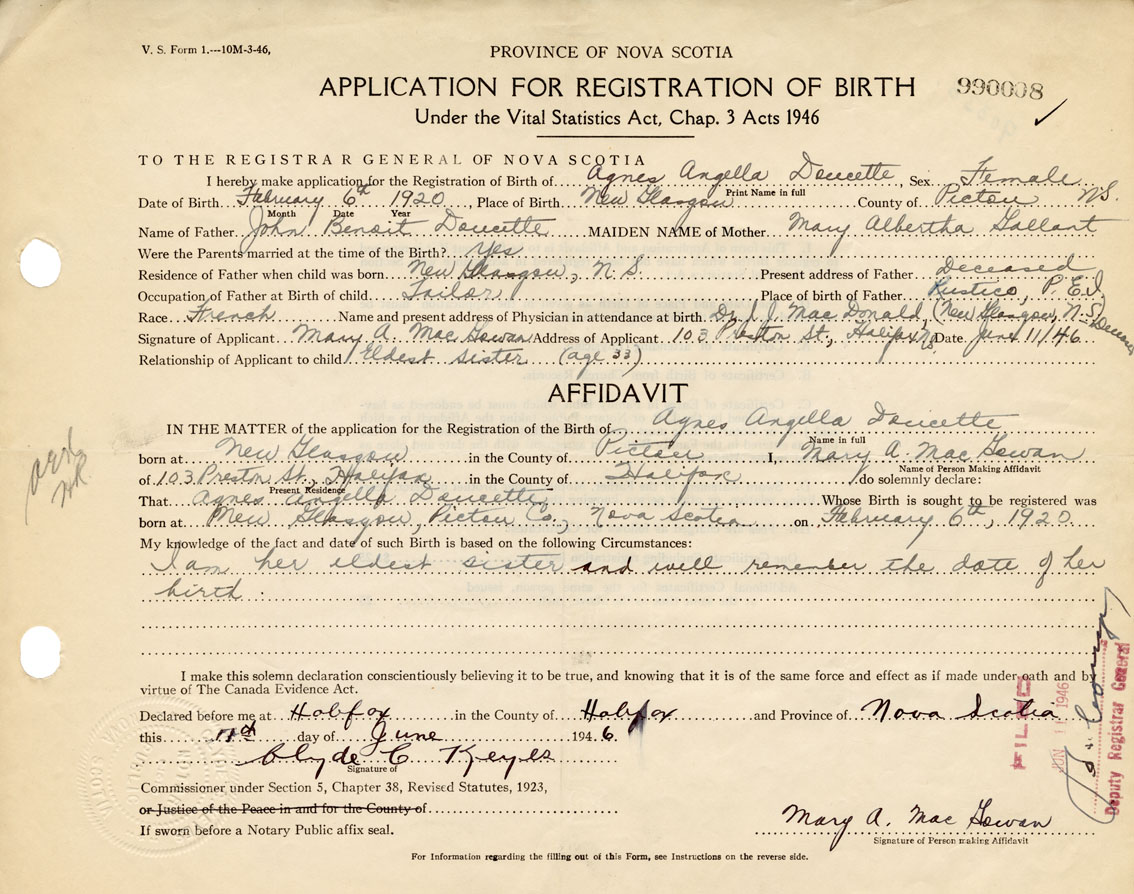 V. S. Form 1.---10M-3-46,
PROVINCE OF NOVA SCOTIA
APPLICATION FOR REGISTRATION OF BIRTH 990008
Under the Vital Statistics Act, Chap. 3 Acts 1946
TO THE REGISTRAR GENERAL OF NOVA SCOTIA
I hereby make application for the Registration of Birth of Agnes Angella Doucette, Sex Female
Print Name in full
Date of Birth February 6th 1920, Place of Birth New Glasgow County of Pictou N.S.
Month Date Year
Name of Father John Benoit Doucette MAIDEN NAME of Mother Mary Albertha Gallant
Were the Parents married at the time of the Birth? Yes
Residence of Father when child was born New Glasgow, N.S. Present address of Father Deceased
Occupation of Father at Birth of child Tailor Place of birth of Father Rustico, P.E.I
Race French Name and present address of Physician in attendance at birth Dr. J.J. MacDonald, (New Glasgow, N.S.)
Signature of Applicant Mary A. MacGowan Address of Applicant 103 Preston St., Halifax N.S. Date June 11/46
Relationship of Applicant to child Eldest sister (age 33)
AFFIDAVIT
IN THE MATTER of the application for the Registration of the Birth of Agnes Angella Doucette
Name in full
born at New Glasgow in the County of Pictou I, Mary A. MacGowan
Name of Person Making Affidavit
of 103 Preston St., Halifax in the County of Halifax do solemnly declare:
Present Residence
That Agnes Angella Doucette Whose Birth is sought to be registered was
born at New Glasgow, Pictou Co., Nova Scotia on February 6th, 1920
My knowledge of the fact and date of such Birth is based on the following Circumstances:
I am her eldest sister and well remember the date of her
birth.
I make this solemn declaration conscientiously believing it to be true, and knowing that it is of the same force and effect as if made under oath and by
virtue of The Canada Evidence Act.
Declared before me at Halifax in the County of Halifax and Province of Nova Scotia
this 11th day of June 1946.
Clyde C Keyes
Signature of
Commissioner under Section 5, Chapter 38, Revised Statutes, 1923,
or Justice of the Peace in and for the County of
If sworn before a Notary Public affix seal.
Mary A. MacGowan
Signature of Person making Affidavit
For Information regarding the filling out of this Form, see Instructions on the reverse side.
FILED
JUN 11 1946
Deputy Registrar General